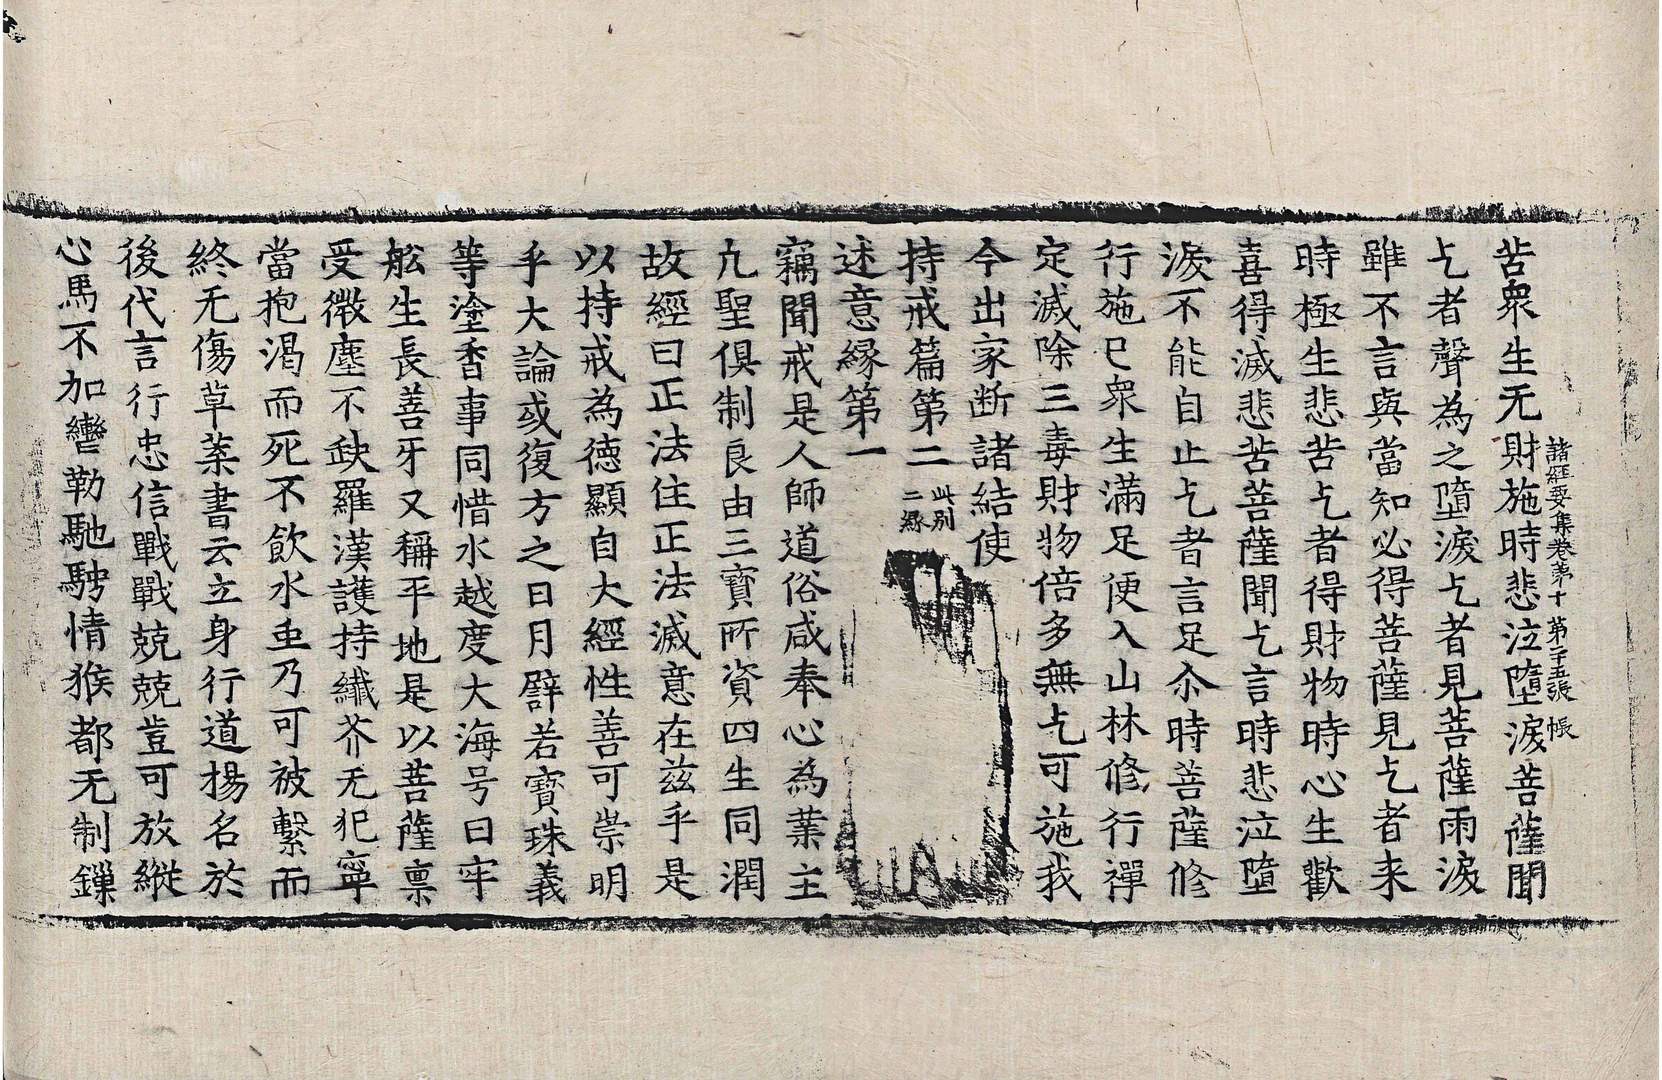 諸經要集卷第十 第二十五張 帳
苦衆生无財施時悲泣墮淚菩薩聞
乞者聲為之墮淚乞者見菩薩雨淚
雖不言與當知必得菩薩見乞者来
時極生悲苦乞者得財物時心生歡
喜得滅悲苦菩薩聞乞言時悲泣墮
淚不能自止乞者言足尒時菩薩修
行施已衆生滿足便入山林修行禪
定滅除三毒財物倍多無乞可施我
今出家断諸結使
持戒篇第二 此別二緣
述意緣第一
竊聞戒是人師道俗咸奉心為業主
凡聖俱制良由三寶所資四生同潤
故經曰正法住正法滅意在兹乎是
以持戒為德顯自大經性善可崇明
乎大論或復方之日月譬若寶珠義
等塗香事同惜水越度大海号曰牢
舩生長善牙又稱平地是以菩薩禀
受微塵不缺羅漢護持纖芥无犯寧
當抱渴而死不飲水虫乃可被繫而
終无傷草葉書云立身行道揚名於
後代言行忠信戰戰兢兢豈可放縱
心馬不加轡勒馳騁情猴都无制鏁